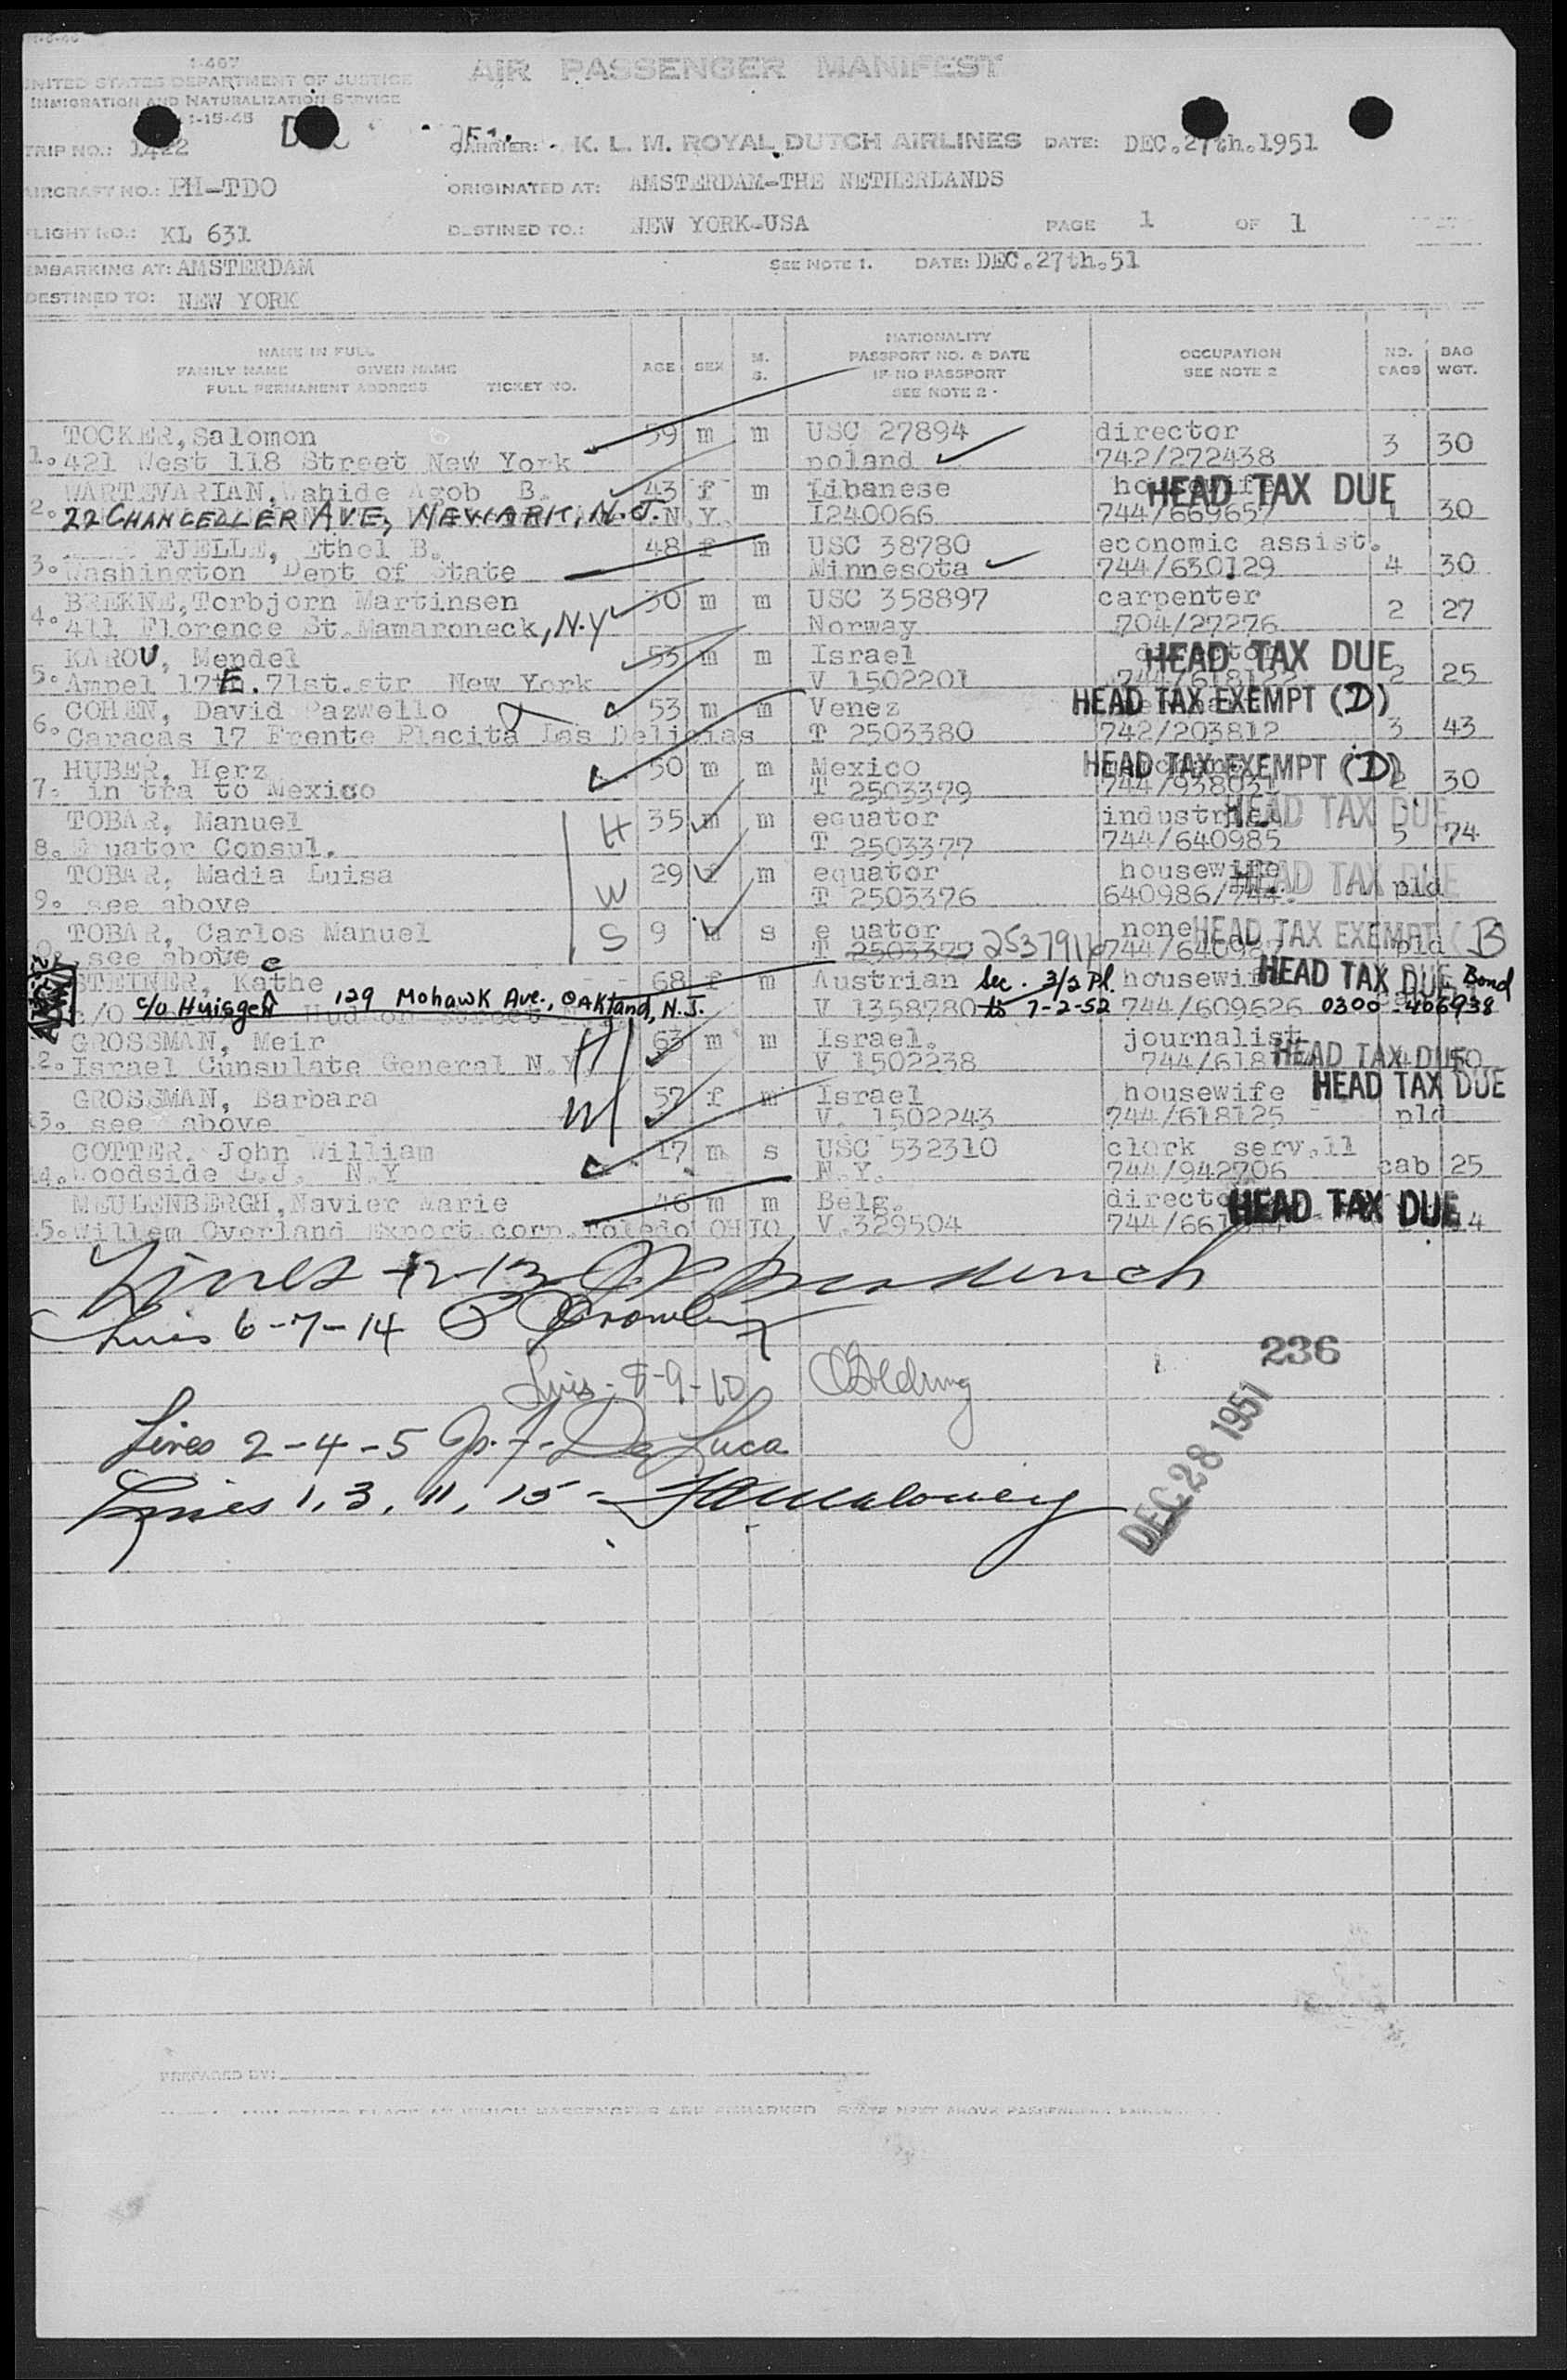 I-467
UNITED STATES DEPARTMENT OF JUSTICE
IMMIGRATION AND NATURALIZATION SERVICE
1-15-45
AIR PASSENGER MANIFEST
TRIP NO.: 1422
CARRIER: K. L. M. ROYAL DUTCH AIRLINES DATE: DEC.27th.1951
AIRCRAFT NO.: PH-TDO ORIGINATED AT: AMSTERDAM-THE NETHERLANDS
FLIGHT NO.: KL 631 DESTINED TO.: NEW YORK-USA PAGE 1 OF 1
EMBARKING AT: AMSTERDAM SEE NOTE 1. DATE: DEC.27th.51
DESTINED TO: NEW YORK
NAME IN FULL
FAMILY NAME GIVEN NAME
FULL PERMANENT ADDRESS TICKET NO.
AGE SEX M. S.
NATIONALITY
PASSPORT NO. & DATE
IF NO PASSPORT
SEE NOTE 2.
OCCUPATION
SEE NOTE 2
NO. BAGS
BAG WGT.
TOCKER, Salomon 59 m m USC 27894 director 3 30
1. 421 West 118 Street New York poland 742/272438
WARTEVARIAN, Wahide Agob B. 43 f m Libanese housewife HEAD TAX DUE
2. 22 CHANCELLER AVE, NEWARK, N.J. N.Y. I240066 744/669657 1 30
FJELLE, Ethel B. 48 f m USC 38780 economic assist.
3. Washington Dept of State Minnesota 744/630129 4 30
BREKNE, Torbjorn Martinsen 30 m m USC 358897 carpenter 2 27
4. 411 Florence St. Mamaroneck, N.Y Norway 704/27276
KAROU, Mendel 53 m m Israel director HEAD TAX DUE
5. Ampel 17 E. 71st. str New York V 1502201 744/618122 2 25
COHEN, David Pazwello 53 m m Venez HEAD TAX EXEMPT (D)
6. Caracas 17 Frente Placita Las Delicias T 2503380 742/203812 3 43
HUBER, Herz 50 m m Mexico HEAD TAX EXEMPT (D)
7. in tra to Mexico T 2503379 744/938031 2 30
TOBAR, Manuel H 35 m m equator HEAD TAX DUE
8. Consul. T 2503377 744/640985 5 74
TOBAR, Madia Luisa W 29 f m equator housewife HEAD TAX DUE
9. see above T 2503376 640986/744. pld
TOBAR, Carlos Manuel S 9 s e uator none HEAD TAX EXEMPT (B
see above T 2503379 2537916 pld
STEINER, Kathe e 68 f m Austrian Sec. 3/2 Pl. housewife HEAD TAX DUE Bond
c/o Huisgen 129 Mohawk Ave., Oakland, N.J. V 1358780 to 7-2-52 744/609626 0300-406938
GROSSMAN, Meir H 63 m m Israel. journalist HEAD TAX DUE
12. Israel Cunsulate General N.Y. V 1502238
GROSSMAN, Barbara W 57 f m Israel housewife HEAD TAX DUE
13. see above V. 1502243 744/618125 pld
COTTER, John William 17 m s USC 532310 clerk serv.11
14. Woodside L.J. N.Y N.Y. 744/942706 cab 25
MEULENBERGH, Navier Marie 46 m m Belg. director HEAD TAX DUE
15. Willem Overland Export corp. Toledo OHIO V.329504
Lines 12-13
6-7-14
236
8-9-10
DEC 28 1951
Lines 2-4-5 Jos. F. De Luca
Lines 1, 3, 11, 15 - Maloney
PREPARED BY: